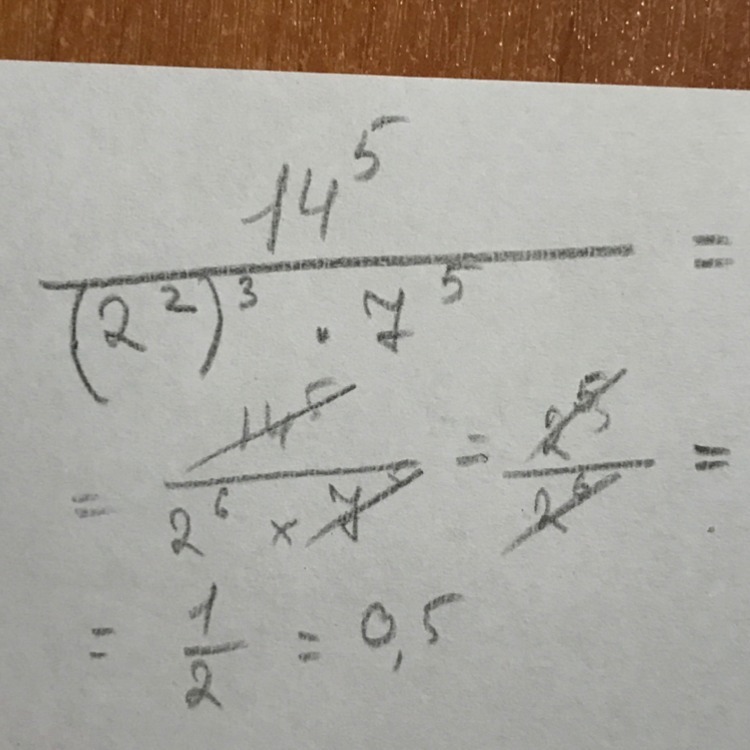 14^5 / ((2^2)^3 · 7^5) =
= 14^5 / (2^6 × 7^5) = 2^5 / 2^6 =
= 1/2 = 0,5